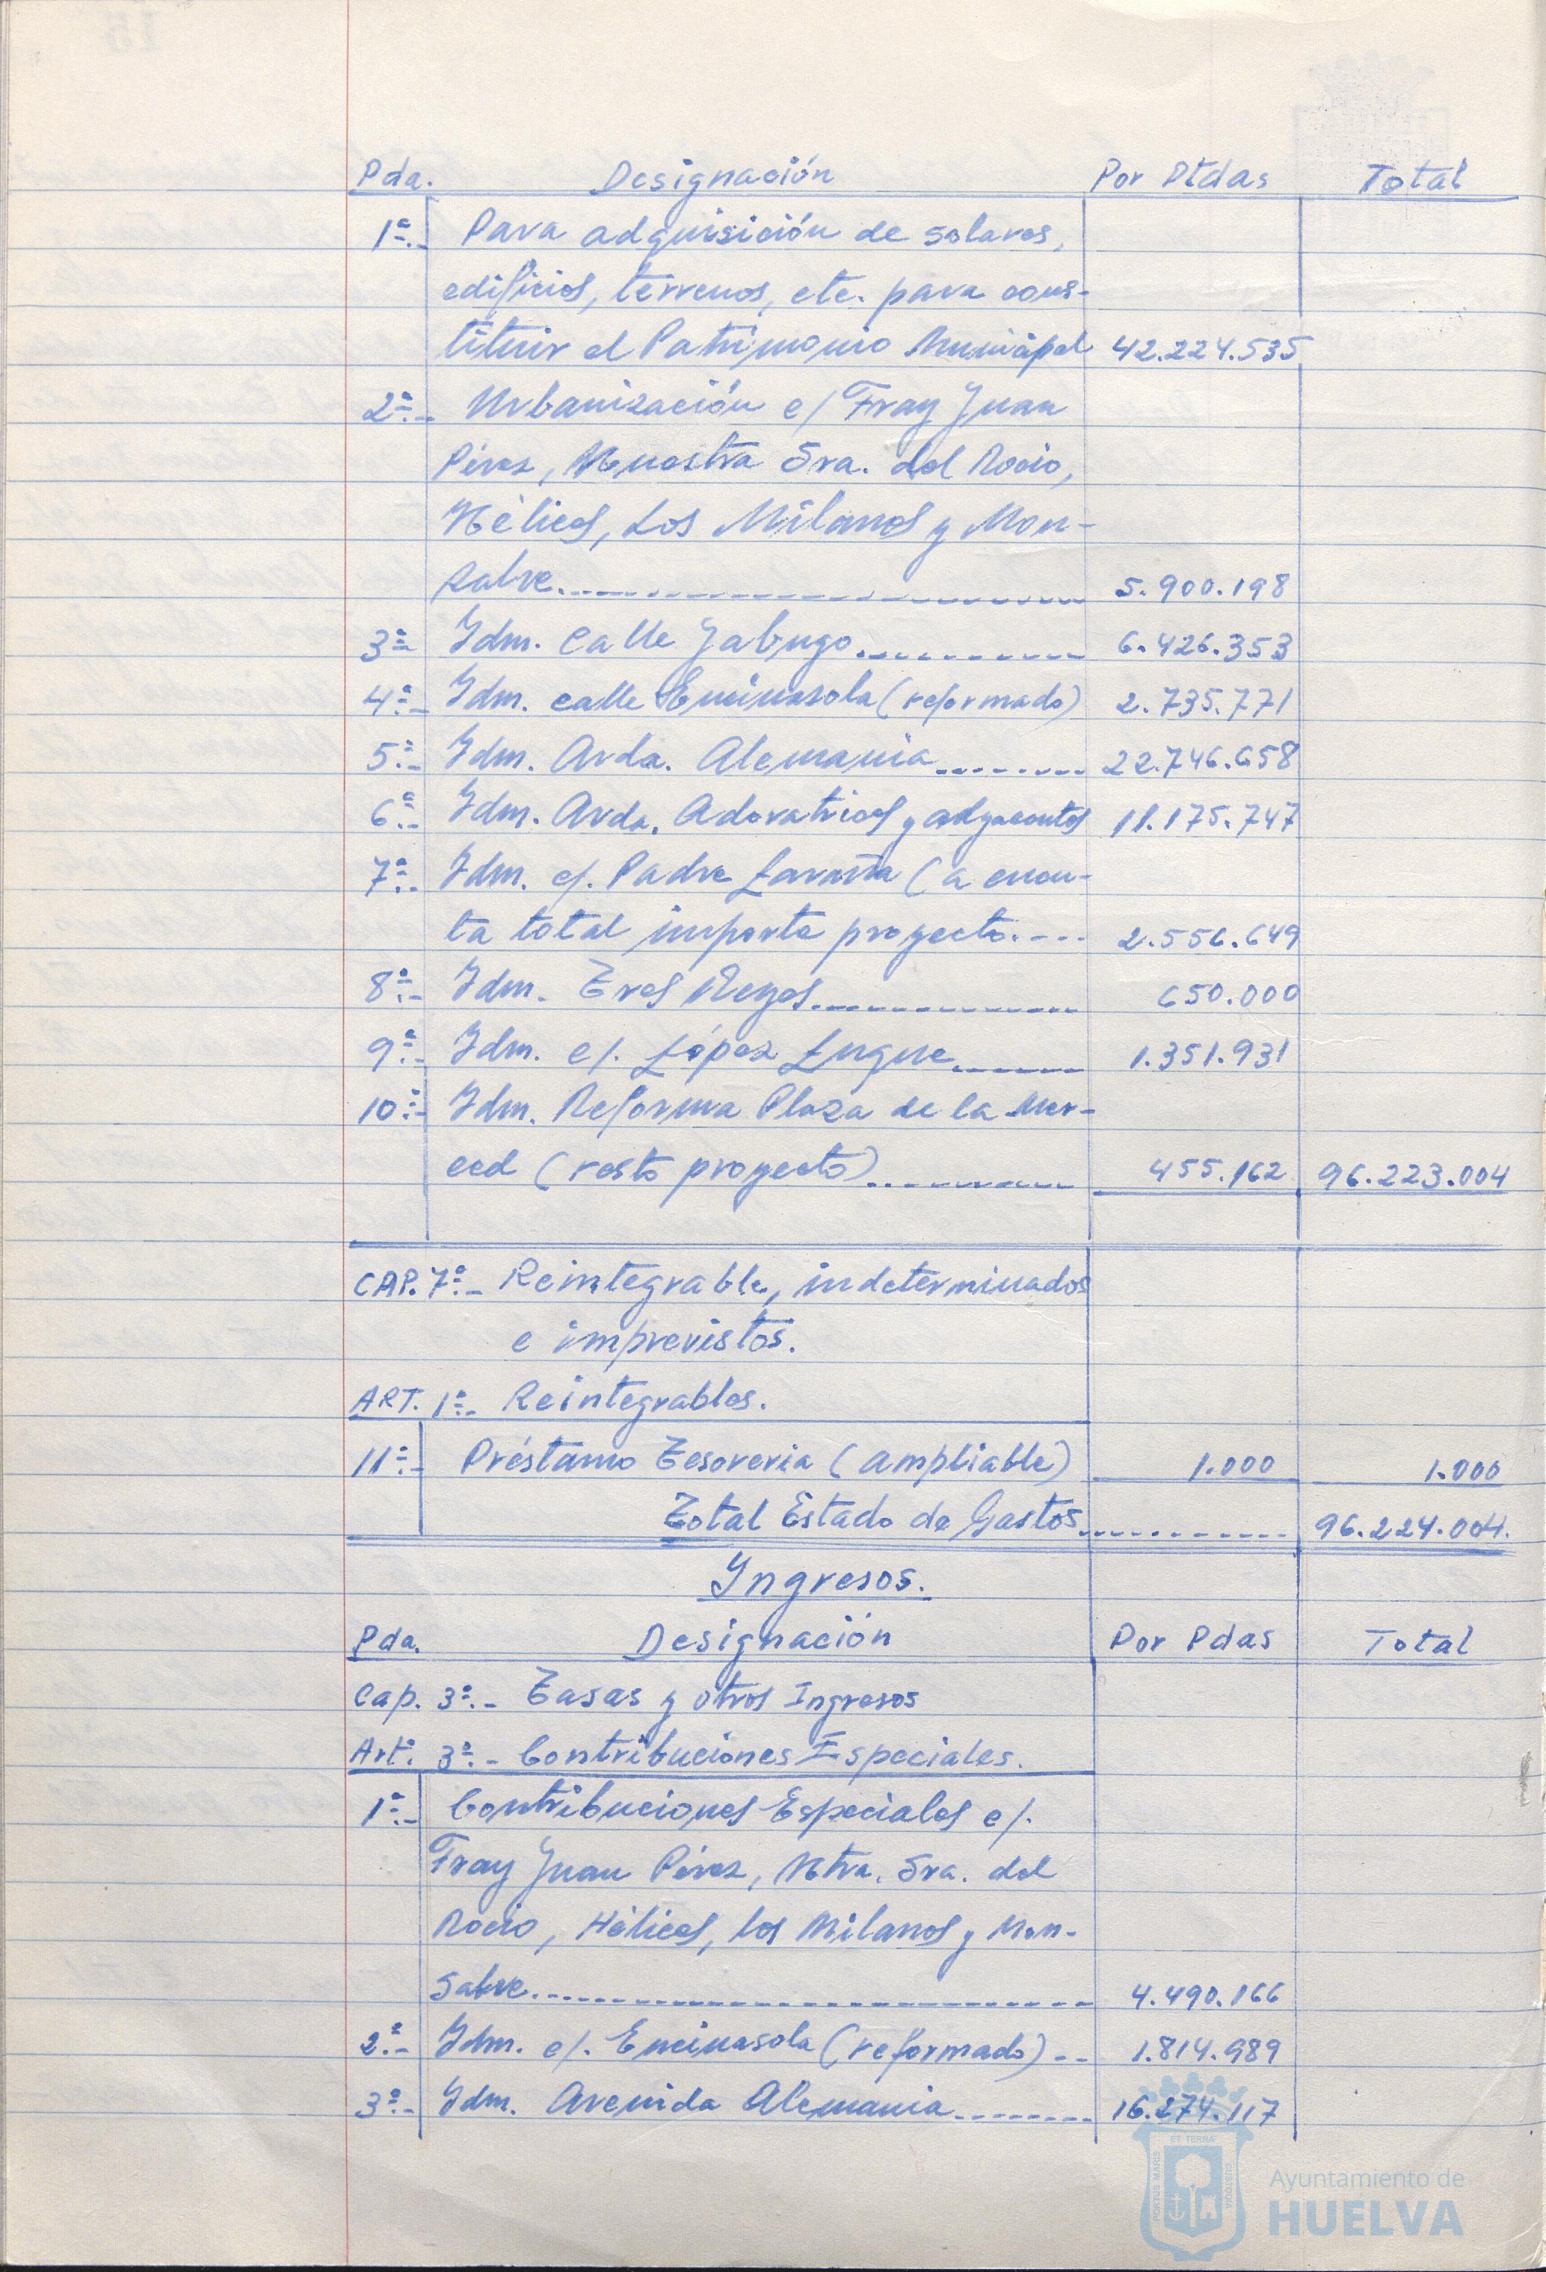 Pda. Designación Por Ptdas Total
1ª.- Para adquisición de solares,
edificios, terrenos, etc. para cons-
tituir el Patrimonio Municipal 42.224.535
2ª.- Urbanización c/ Fray Juan
Pérez, Nuestra Sra. del Rocio,
Hélices, Los Milanos y Mon-
salve.------------ 5.900.198
3ª Idm. Calle Jabugo.--------- 6.426.353
4ª.- Idm. calle Encinasola (reformado) 2.735.771
5ª.- Idm. Avda. Alemania-------- 22.746.658
6ª.- Idm. Avda. Adoratrices y adyacentes 11.175.747
7ª.- Idm. c/. Padre Laraña (a cuen-
ta total importe proyecto.--- 2.556.649
8ª.- Idm. Tres Reyes.---------- 650.000
9ª.- Idm. c/. López Luque.------ 1.351.931
10ª.- Idm. Reforma Plaza de la Mer-
ced (resto proyecto)-------- 455.162 96.223.004
CAP. 7º.- Reintegrable, indeterminados
e imprevistos.
ART. 1º.- Reintegrables.
11ª.- Préstamo Tesoreria (ampliable) 1.000 1.000
Total Estado de Gastos.......... 96.224.004.
Ingresos.
Pda. Designación Por Pdas Total
Cap. 3º.- Tasas y otros Ingresos
Artº. 3º.- Contribuciones Especiales.
1ª.- Contribuciones Especiales c/.
Fray Juan Pérez, Ntra. Sra. del
Rocio, Hélices, los Milanos y Mon-
salve.------------ 4.490.166
2ª.- Idm. c/. Encinasola (reformado)-- 1.814.989
3ª.- Idm. Avenida Alemania-------- 16.274.117
ET TERRA
PORTUS MARIS
CUSTODIA
Ayuntamiento de
HUELVA